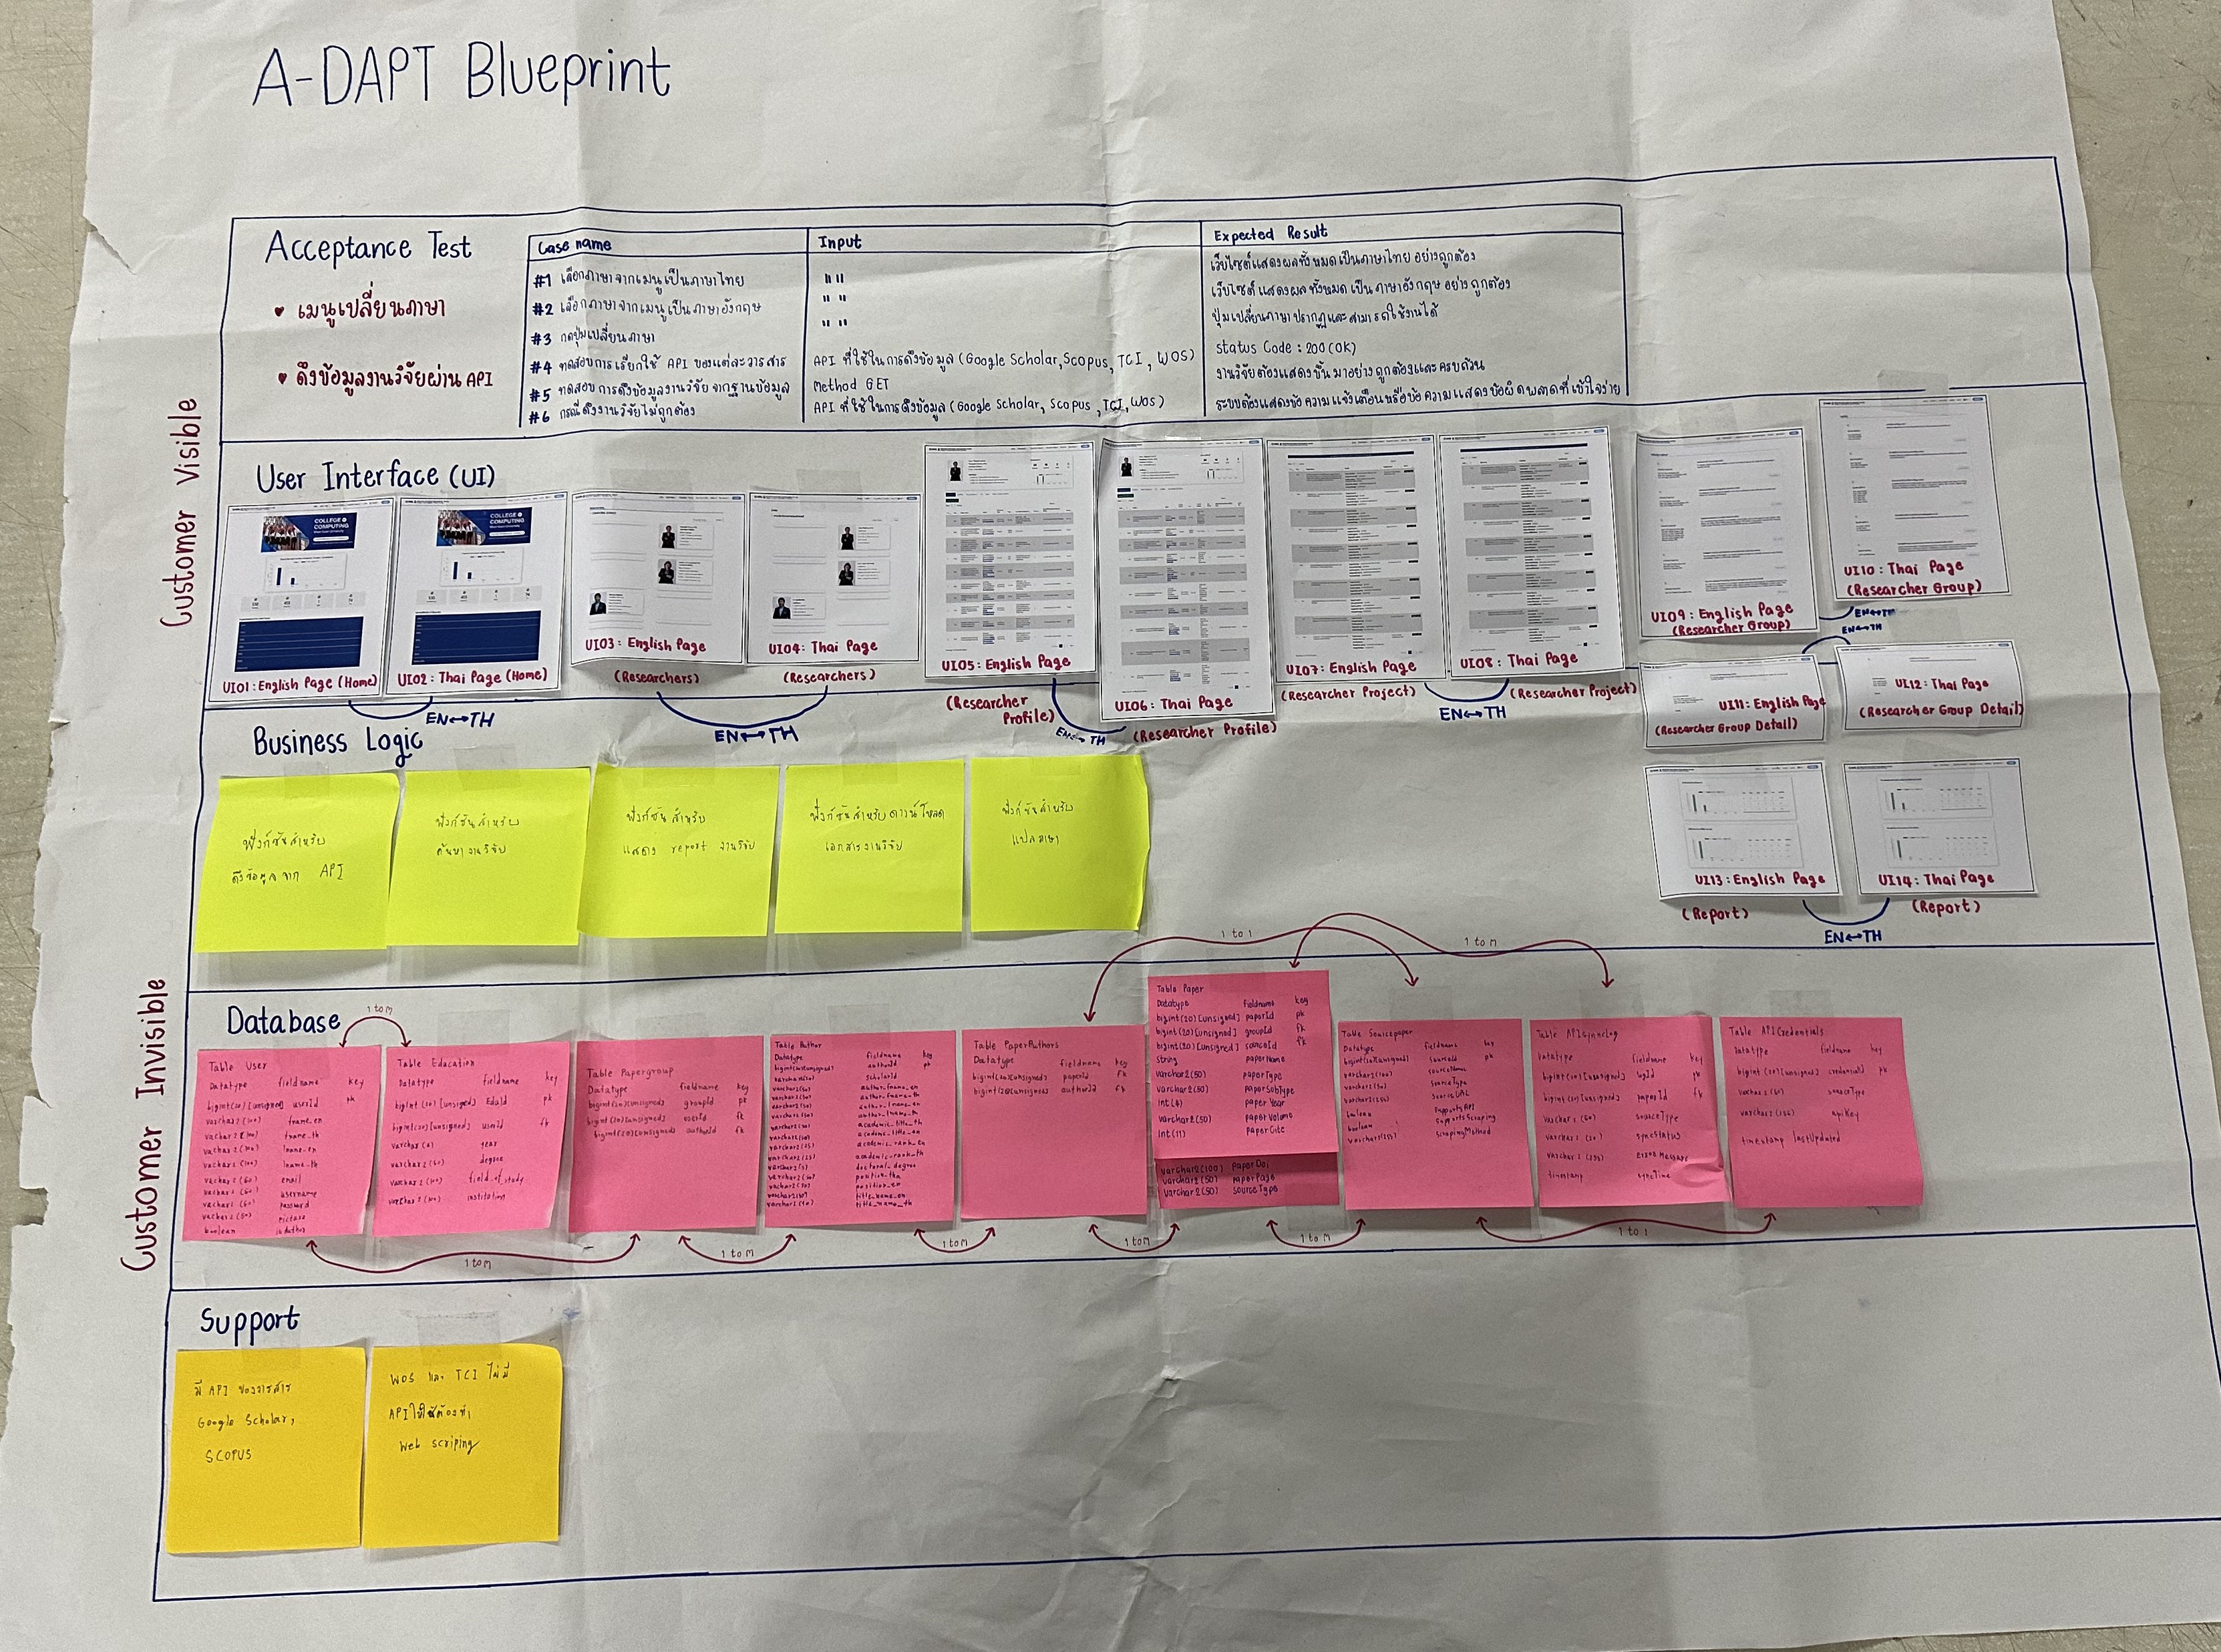 A-DAPT Blueprint
Customer Visible
Acceptance Test
♥ เมนูเปลี่ยนภาษา
♥ ดึงข้อมูลงานวิจัยผ่าน API
Case name
Input
Expected Result
#1 เลือกภาษาจากเมนูเป็นภาษาไทย
" "
เว็บไซต์แสดงผลทั้งหมดเป็นภาษาไทย อย่างถูกต้อง
#2 เลือกภาษาจากเมนูเป็นภาษาอังกฤษ
" "
เว็บไซต์แสดงผลทั้งหมดเป็นภาษาอังกฤษ อย่างถูกต้อง
#3 กดปุ่มเปลี่ยนภาษา
" "
ปุ่มเปลี่ยนภาษาปรากฏและสามารถใช้งานได้
#4 ทดสอบการเรียกใช้ API ของแต่ละวารสาร
API ที่ใช้ในการดึงข้อมูล (Google Scholar, Scopus, TCI, WOS)
status Code : 200 (OK)
#5 ทดสอบการดึงข้อมูลงานวิจัย จากฐานข้อมูล
Method GET
งานวิจัยต้องแสดงขึ้นมาอย่างถูกต้องและครบถ้วน
#6 กรณีดึงงานวิจัยไม่ถูกต้อง
API ที่ใช้ในการดึงข้อมูล (Google Scholar, Scopus, TCI, WOS)
ระบบต้องแสดงข้อความแจ้งเตือนหรือข้อความแสดงข้อผิดพลาดที่เข้าใจง่าย
User Interface (UI)
COLLEGE OF
COMPUTING
COLLEGE OF
COMPUTING
UI01 : English Page (Home)
UI02 : Thai Page (Home)
EN↔TH
UI03 : English Page
(Researchers)
UI04 : Thai Page
(Researchers)
EN↔TH
UI05 : English Page
(Researcher Profile)
UI06 : Thai Page
(Researcher Profile)
EN↔TH
UI07 : English Page
(Researcher Project)
UI08 : Thai Page
(Researcher Project)
EN↔TH
UI09 : English Page
(Researcher Group)
UI10 : Thai Page
(Researcher Group)
EN↔TH
EN↔TH
UI11 : English Page
(Researcher Group Detail)
UI12 : Thai Page
(Researcher Group Detail)
UI13 : English Page
(Report)
UI14 : Thai Page
(Report)
EN↔TH
Business Logic
ฟังก์ชันสำหรับ
ดึงข้อมูลจาก API
ฟังก์ชันสำหรับ
ค้นหางานวิจัย
ฟังก์ชันสำหรับ
แสดง report งานวิจัย
ฟังก์ชันสำหรับดาวน์โหลด
เอกสารงานวิจัย
ฟังก์ชันสำหรับ
แปลภาษา
Customer Invisible
Database
1 to M
1 to 1
1 to M
Table User
Datatype fieldname key
bigint(20) [unsigned] userId pk
varchar2 (100) fname_en
vachar2 (100) fname_th
vachar2 (100) lname_en
vachar2 (100) lname_th
vachar2 (60) email
vachar2 (60) username
varchar2 (60) password
varchar2 (50) picture
boolean isAuthor
Table Education
Datatype fieldname key
bigint (20) [unsigned] EduId pk
bigint(20) [unsigned] userId fk
varchar (4) year
varchar2 (60) degree
varchar2 (100) field_of_study
varchar2 (100) institution
Table Papergroup
Datatype fieldname key
bigint(20)[unsigned] groupId pk
bigint(20)[unsigned] userId fk
bigint(20)[unsigned] authorId fk
Table Author
Datatype fieldname key
bigint(20)[unsigned] authorId pk
scholarId
author_fname_en
author_fname_th
author_lname_en
author_lname_th
academic_title_th
academic_title_en
academic_rank_en
academic_rank_th
doctoral_degree
position_th
position_en
title_name_en
title_name_th
Table PaperAuthors
Datatype fieldname key
bigint(20)[unsigned] paperId fk
bigint(20)[unsigned] authorId fk
Table Paper
Datatype fieldname key
bigint(20) [unsigned] paperId pk
bigint(20) [unsigned] groupId fk
bigint(20) [unsigned] sourceId fk
string paperName
varchar2(50) paperType
varchar2(50) paperSubType
int(4) paperYear
varchar2(50) paperVolume
int(11) paperCite
varchar2(100) paperDoi
varchar2(50) paperPage
varchar2(50) sourceType
Table Sourcepaper
Datatype fieldname key
bigint(20)[unsigned] sourceId pk
varchar2(100) sourceName
varchar2(50) sourceType
varchar2(255) sourceURL
boolean supportsAPI
boolean supportsScraping
varchar2(255) scrapingMethod
Table APISyncLog
Datatype fieldname key
bigint(20) [unsigned] logId pk
bigint(20) [unsigned] paperId fk
varchar2 (60) sourceType
varchar2 (20) syncStatus
varchar2 (255) ErrorMessage
timestamp syncTime
Table APICredentials
Datatype fieldname key
bigint (20) [unsigned] credentialId pk
varchar2 (60) sourceType
varchar2 (255) apiKey
timestamp lastUpdated
1 to M
1 to M
1 to M
1 to M
1 to M
1 to 1
Support
มี API ของวารสาร
Google Scholar,
SCOPUS
WOS และ TCI ไม่มี
API ให้ใช้ต้องทำ
Web scriping